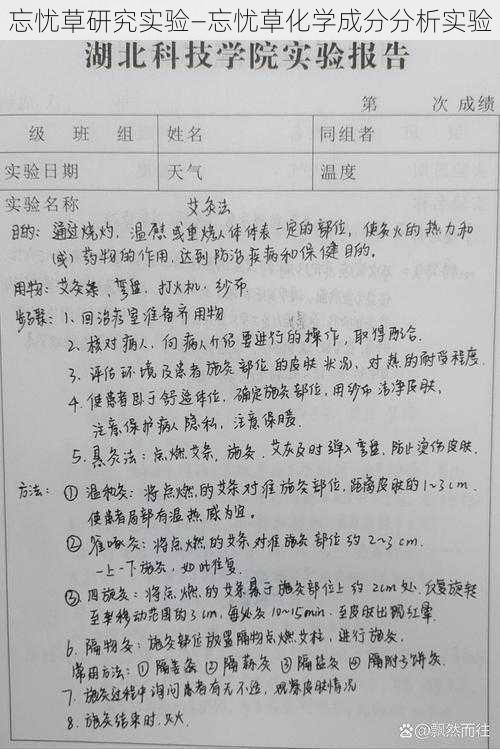 忘忧草研究实验—忘忧草化学成分分析实验
湖北科技学院实验报告
第 次 成绩
级 班 组 姓名 同组者
实验日期 天气 温度
实验名称 艾灸法
目的: 通过烧灼、温熨或熏烧人体体表一定的部位, 使灸火的热力和
(或) 药物的作用, 达到防治疾病和保健目的。
用物: 艾灸条、弯盘、打火机、纱布
步骤: 1. 回治疗室准备齐用物
2. 核对病人, 向病人介绍要进行的操作, 取得配合.
3. 评估环境及患者施灸部位的皮肤状况, 对热的耐受程度.
4. 使患者卧于舒适体位, 确定施灸部位, 用纱布洁净皮肤,
注意保护病人隐私, 注意保暖.
5. 具灸法: 点燃艾条, 施灸, 艾灰及时弹入弯盘, 防止烫伤皮肤.
方法: ① 温和灸: 将点燃的艾条对准施灸部位, 距离皮肤的1~3cm.
使患者局部有温热感为宜。
② 雀啄灸: 将点燃的艾条对准施灸部位约2~3cm.
一上一下施灸, 如此往复.
③ 回旋灸: 将点燃的艾条悬于施灸部位上约2cm处. 反复旋转
移动范围约3cm, 每处灸10~15min, 至皮肤出现红晕.
6. 隔物灸: 施灸部位放置隔物点燃艾柱, 进行施灸,
常用方法: ① 隔姜灸 ② 隔蒜灸 ③ 隔盐灸 ④ 隔附子饼灸.
7. 施灸过程中询问患者有无不适, 观察皮肤情况
8. 施灸结束时, 灭火
@飘然而往